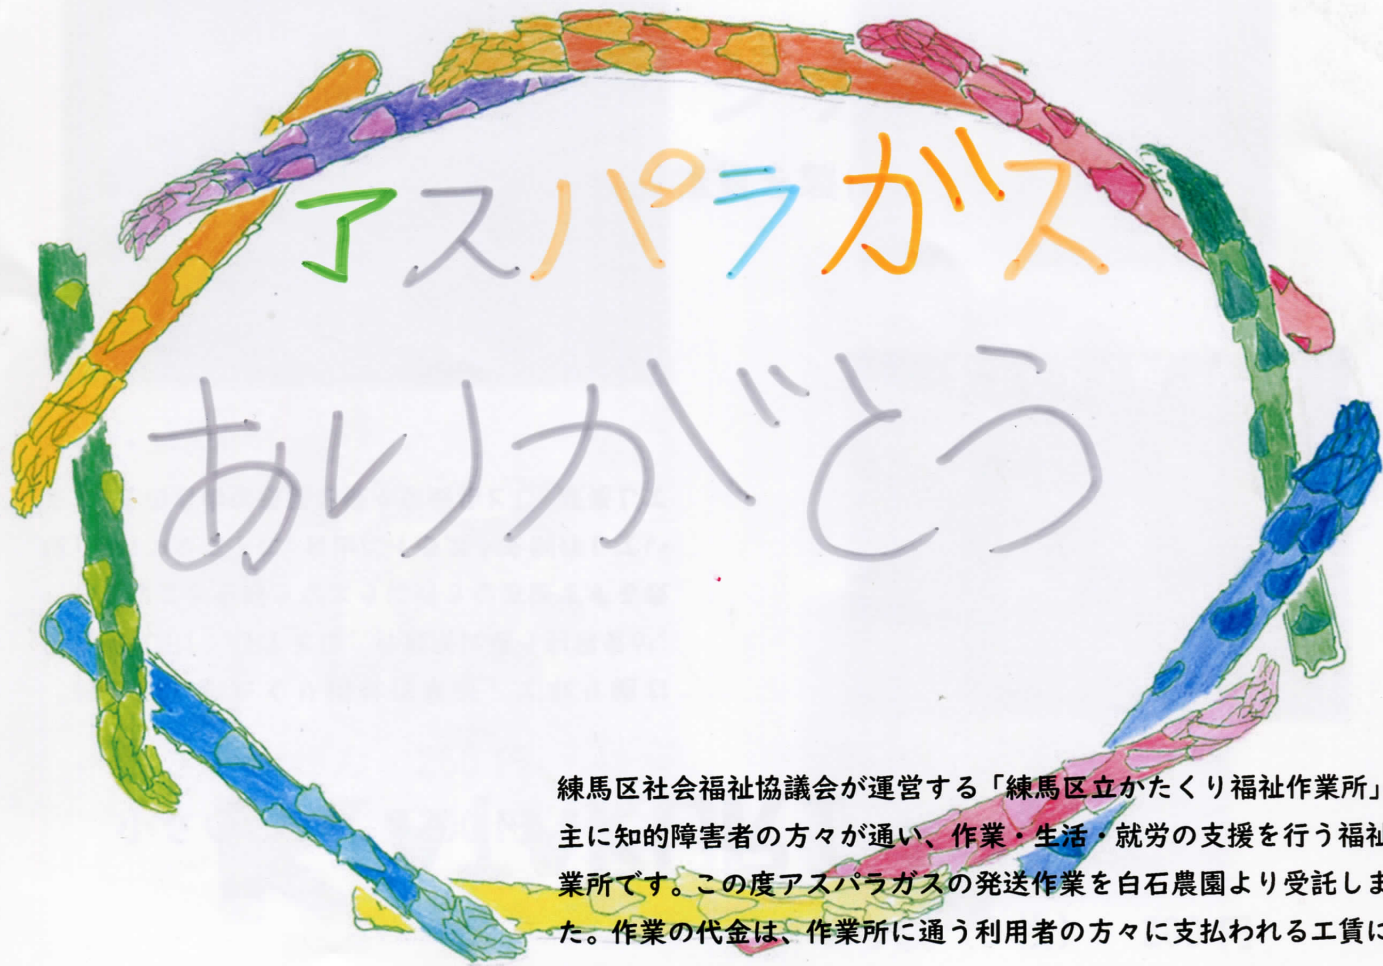 アスパラガス
ありがとう
練馬区社会福祉協議会が運営する「練馬区立かたくり福祉作業所」
主に知的障害者の方々が通い、作業・生活・就労の支援を行う福祉
業所です。この度アスパラガスの発送作業を白石農園より受託しま
た。作業の代金は、作業所に通う利用者の方々に支払われる工賃に